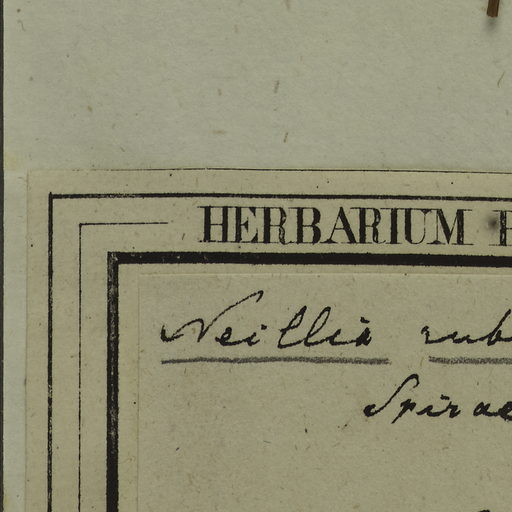 HERBARIUM
Neillia rub
Spirae